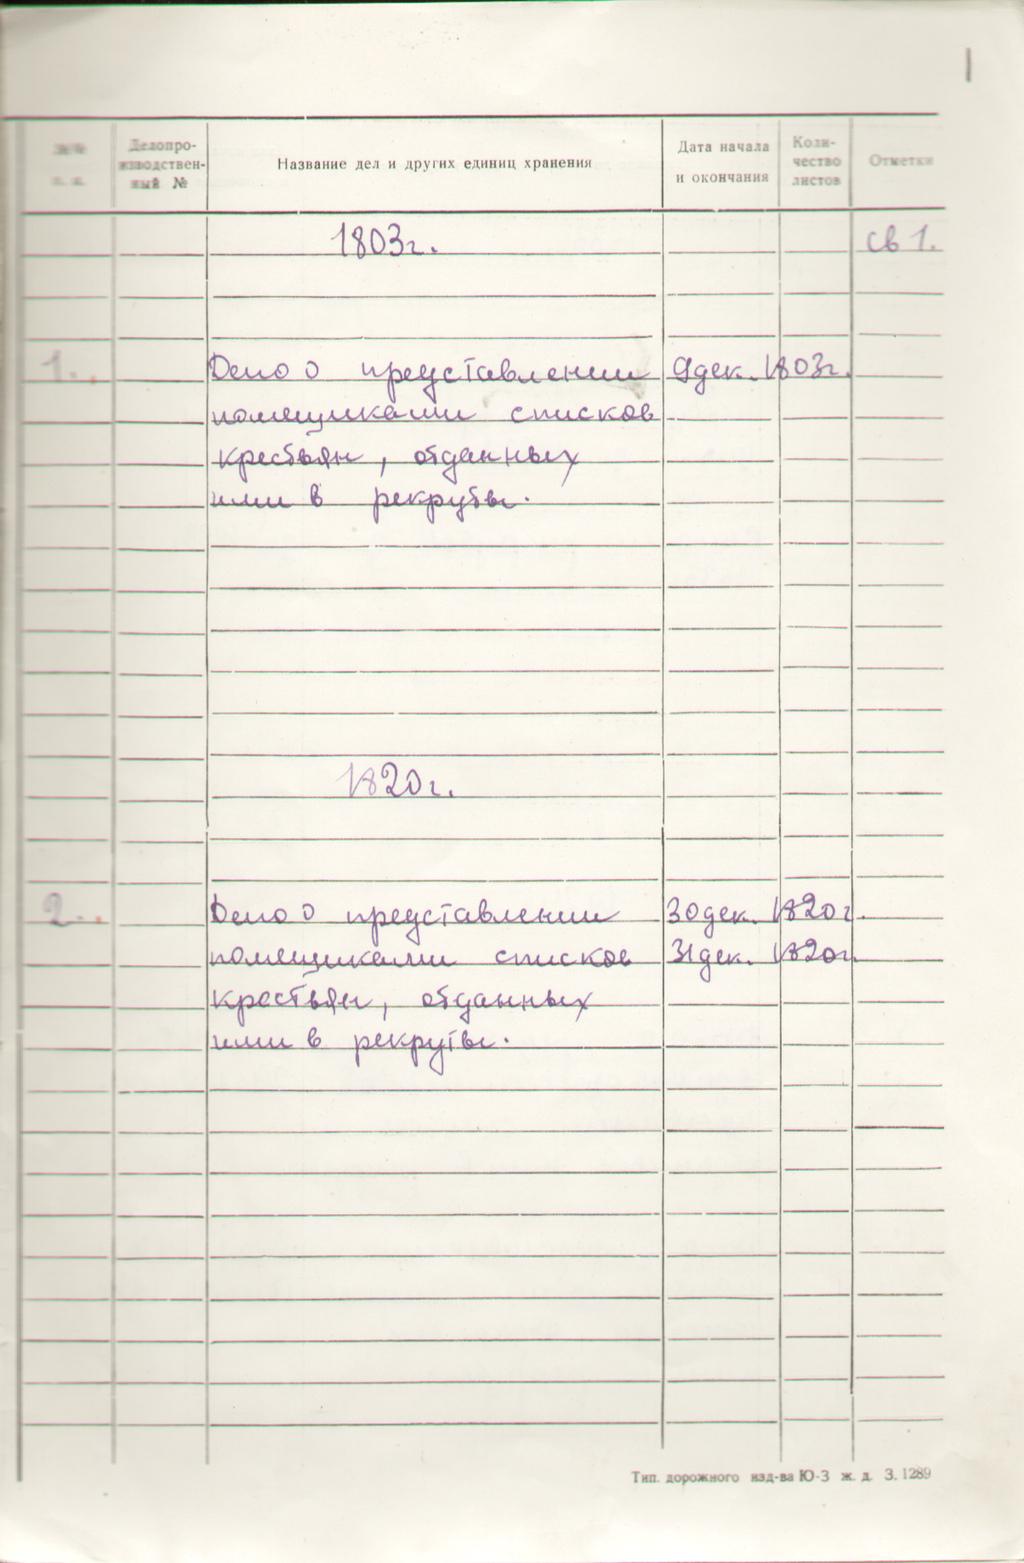 №№ п. п.
Делопро-
изводствен-
ный №
Название дел и других единиц хранения
Дата начала
и окончания
Коли-
чество
листов
Отметки
1803г.
св 1.
1. Дело о представлении 9 дек. 1803г.
помещиками списков
крестьян, отданных
ими в рекруты.
1820г.
2. Дело о представлении 30 дек. 1820г.
помещиками списков 31 дек. 1820г.
крестьян, отданных
ими в рекруты.
Тип. дорожного изд-ва Ю-З ж. д. З. 1289